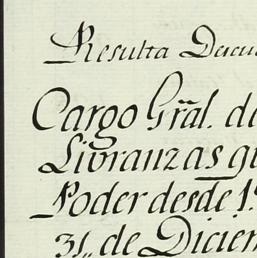 Resulta Docu
Cargo Gral. de
Livranzas q
Poder desde 1.
31,, de Diciem